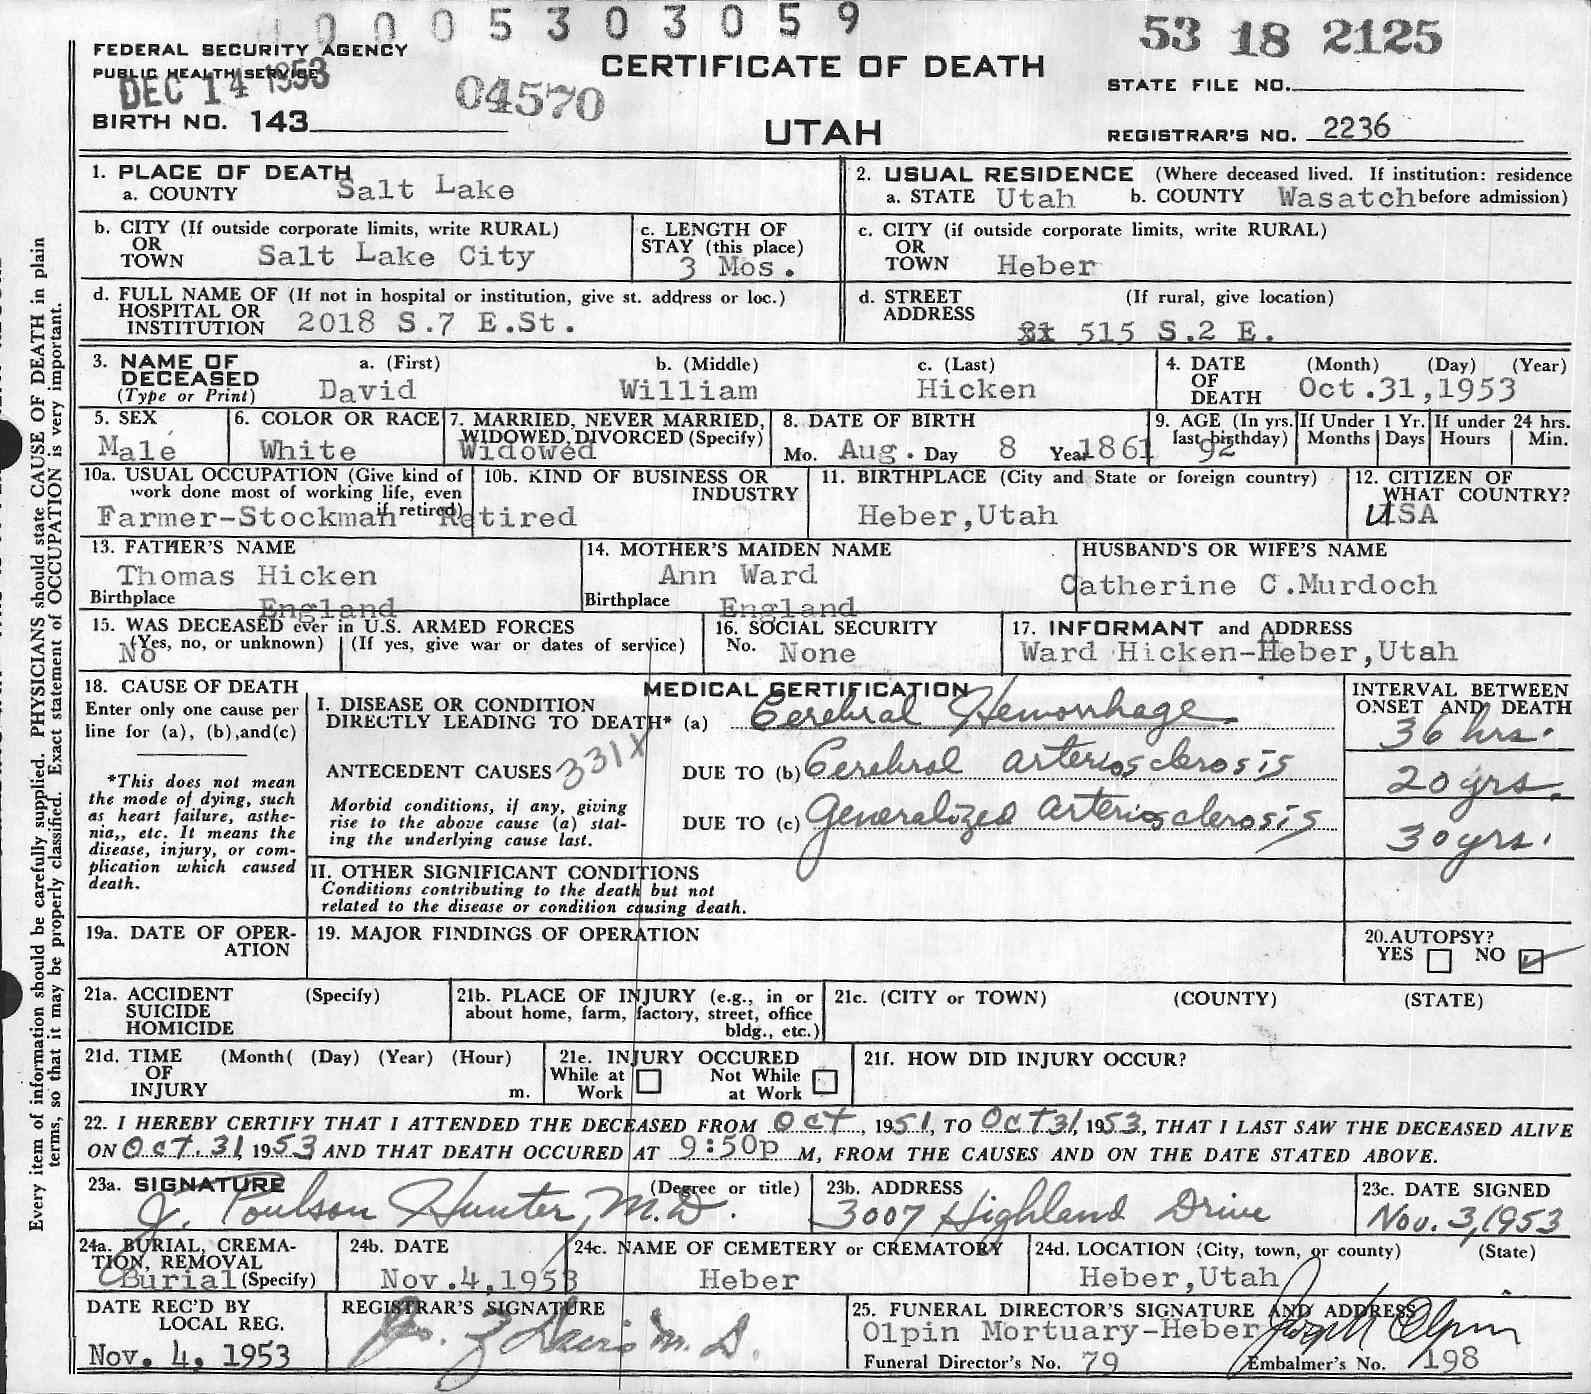 0 0 0 5 3 0 3 0 5 9
53 18 2125
FEDERAL SECURITY AGENCY
PUBLIC HEALTH SERVICE
DEC 14 1953
04570
CERTIFICATE OF DEATH
STATE FILE NO.
BIRTH NO. 143
UTAH
REGISTRAR'S NO. 2236
1. PLACE OF DEATH
a. COUNTY Salt Lake
2. USUAL RESIDENCE (Where deceased lived. If institution: residence
a. STATE Utah b. COUNTY Wasatch before admission)
b. CITY (If outside corporate limits, write RURAL)
OR
TOWN Salt Lake City
c. LENGTH OF
STAY (this place)
3 Mos.
c. CITY (if outside corporate limits, write RURAL)
OR
TOWN Heber
d. FULL NAME OF (If not in hospital or institution, give st. address or loc.)
HOSPITAL OR
INSTITUTION 2018 S.7 E.St.
d. STREET (If rural, give location)
ADDRESS
515 S.2 E.
3. NAME OF DECEASED
(Type or Print)
a. (First) b. (Middle) c. (Last)
David William Hicken
4. DATE OF DEATH (Month) (Day) (Year)
Oct.31,1953
5. SEX
Male
6. COLOR OR RACE
White
7. MARRIED, NEVER MARRIED,
WIDOWED, DIVORCED (Specify)
Widowed
8. DATE OF BIRTH
Mo. Aug. Day 8 Year 1861
9. AGE (In yrs. last birthday)
92
If Under 1 Yr.
Months Days
If under 24 hrs.
Hours Min.
10a. USUAL OCCUPATION (Give kind of
work done most of working life, even
if retired)
Farmer-Stockman Retired
10b. KIND OF BUSINESS OR
INDUSTRY
11. BIRTHPLACE (City and State or foreign country)
Heber,Utah
12. CITIZEN OF
WHAT COUNTRY?
USA
13. FATHER'S NAME
Thomas Hicken
Birthplace England
14. MOTHER'S MAIDEN NAME
Ann Ward
Birthplace England
HUSBAND'S OR WIFE'S NAME
Catherine C.Murdoch
15. WAS DECEASED ever in U.S. ARMED FORCES
(Yes, no, or unknown) (If yes, give war or dates of service)
No
16. SOCIAL SECURITY
No. None
17. INFORMANT and ADDRESS
Ward Hicken-Heber,Utah
18. CAUSE OF DEATH
Enter only one cause per
line for (a), (b),and(c)
*This does not mean
the mode of dying, such
as heart failure, asthe-
nia,, etc. It means the
disease, injury, or com-
plication which caused
death.
MEDICAL CERTIFICATION
I. DISEASE OR CONDITION
DIRECTLY LEADING TO DEATH* (a) Cerebral Hemorrhage
ANTECEDENT CAUSES 331X DUE TO (b) Cerebral arteriosclerosis
Morbid conditions, if any, giving
rise to the above cause (a) stat-
ing the underlying cause last.
DUE TO (c) Generalized arteriosclerosis
INTERVAL BETWEEN
ONSET AND DEATH
36 hrs.
20 yrs.
30 yrs.
II. OTHER SIGNIFICANT CONDITIONS
Conditions contributing to the death but not
related to the disease or condition causing death.
19a. DATE OF OPER-
ATION
19. MAJOR FINDINGS OF OPERATION
20.AUTOPSY?
YES NO
21a. ACCIDENT (Specify)
SUICIDE
HOMICIDE
21b. PLACE OF INJURY (e.g., in or
about home, farm, factory, street, office
bldg., etc.)
21c. (CITY or TOWN) (COUNTY) (STATE)
21d. TIME (Month( (Day) (Year) (Hour)
OF
INJURY m.
21e. INJURY OCCURED
While at Work Not While at Work
21f. HOW DID INJURY OCCUR?
22. I HEREBY CERTIFY THAT I ATTENDED THE DECEASED FROM Oct, 1951, TO Oct 31, 1953, THAT I LAST SAW THE DECEASED ALIVE
ON Oct. 31, 1953 AND THAT DEATH OCCURED AT 9:50p M, FROM THE CAUSES AND ON THE DATE STATED ABOVE.
23a. SIGNATURE (Degree or title)
J. Poulson Hunter, M.D.
23b. ADDRESS
3007 Highland Drive
23c. DATE SIGNED
Nov. 3, 1953
24a. BURIAL, CREMA-
TION, REMOVAL
Burial (Specify)
24b. DATE
Nov.4,1953
24c. NAME OF CEMETERY or CREMATORY
Heber
24d. LOCATION (City, town, or county) (State)
Heber,Utah
DATE REC'D BY
LOCAL REG.
Nov. 4, 1953
REGISTRAR'S SIGNATURE
Davis M.D.
25. FUNERAL DIRECTOR'S SIGNATURE AND ADDRESS
Olpin Mortuary-Heber Olpin
Funeral Director's No. 79 Embalmer's No. 198
Every item of information should be carefully supplied. PHYSICIANS should state CAUSE OF DEATH in plain
terms, so that it may be properly classified. Exact statement of OCCUPATION is very important.